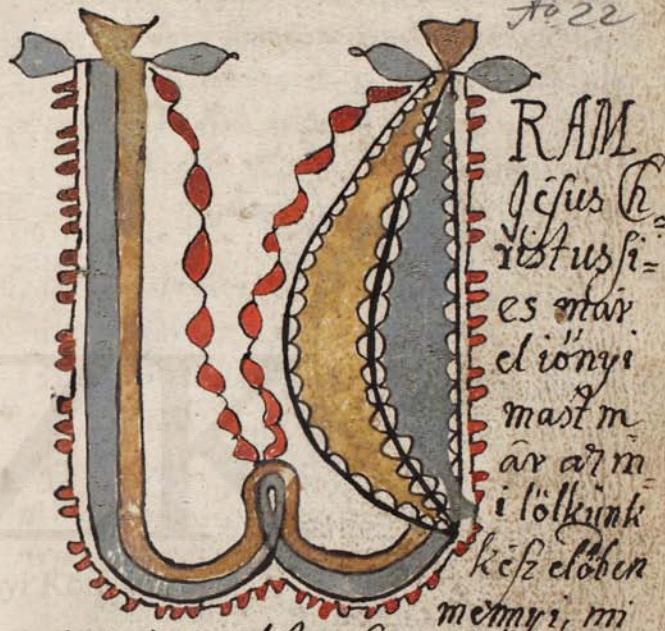 No 22
URAM
Jésus Ch=
ristus si=
es már
el iőnyi
mast m
ár az m
i lőlkünk
kész előben
mennyi, mi